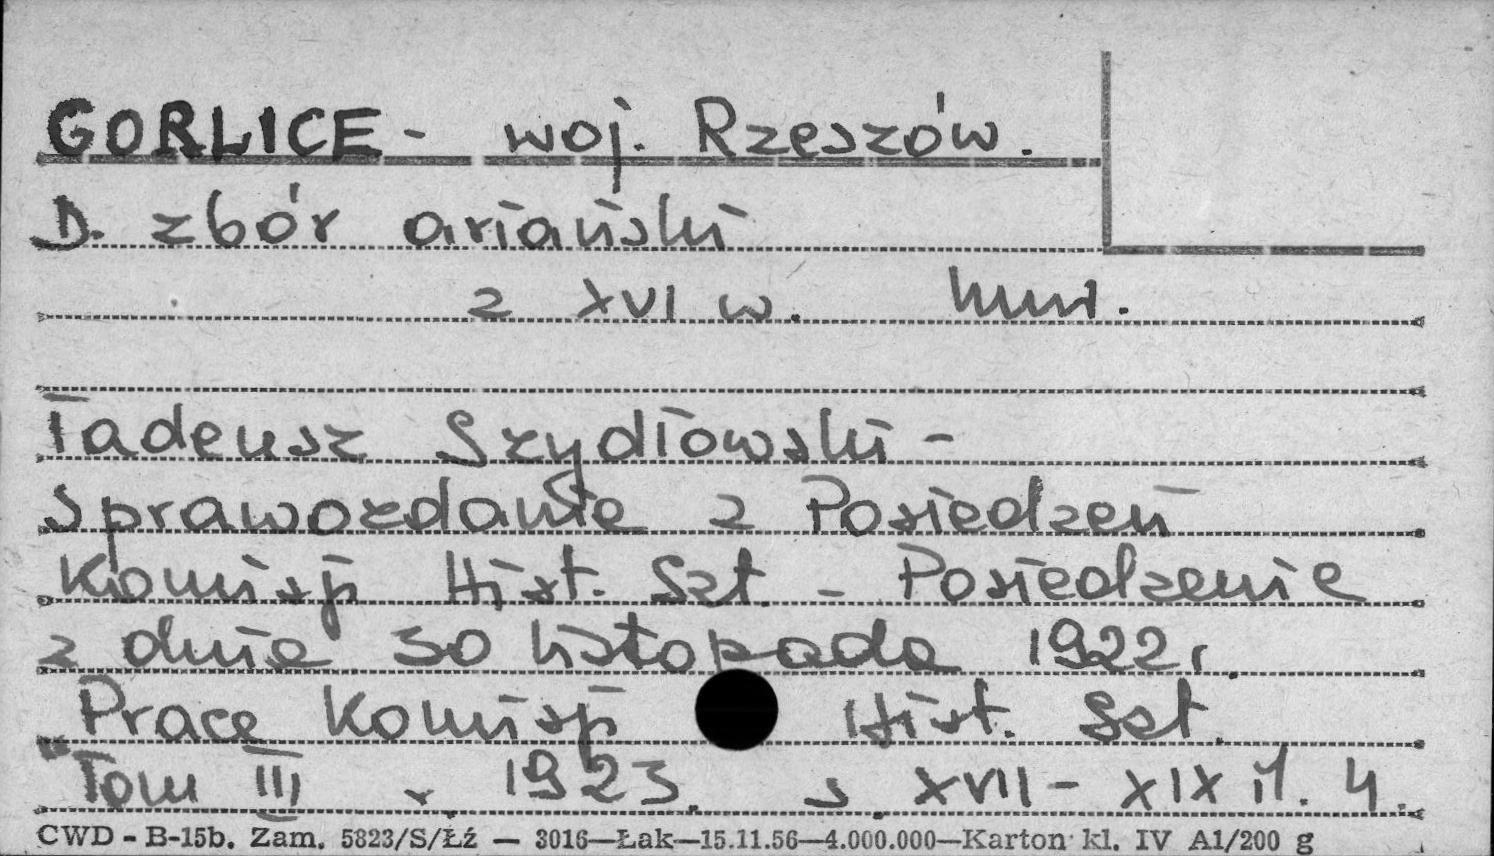 GORLICE - woj. Rzeszów.
D. zbór ariański
z XVI w. mur.
Tadeusz Szydłowski -
Sprawozdanie z Posiedzeń
Komisji Hist. Szt. - Posiedzenie
z dnia 30 listopada 1922 r.
Prace Komisji Hist. Szt.
Tom III r. 1923. s XVII - XIX il. 4.
CWD - B-15b. Zam. 5823/S/Łź — 3016—Łak—15.11.56—4.000.000—Karton kl. IV A1/200 g